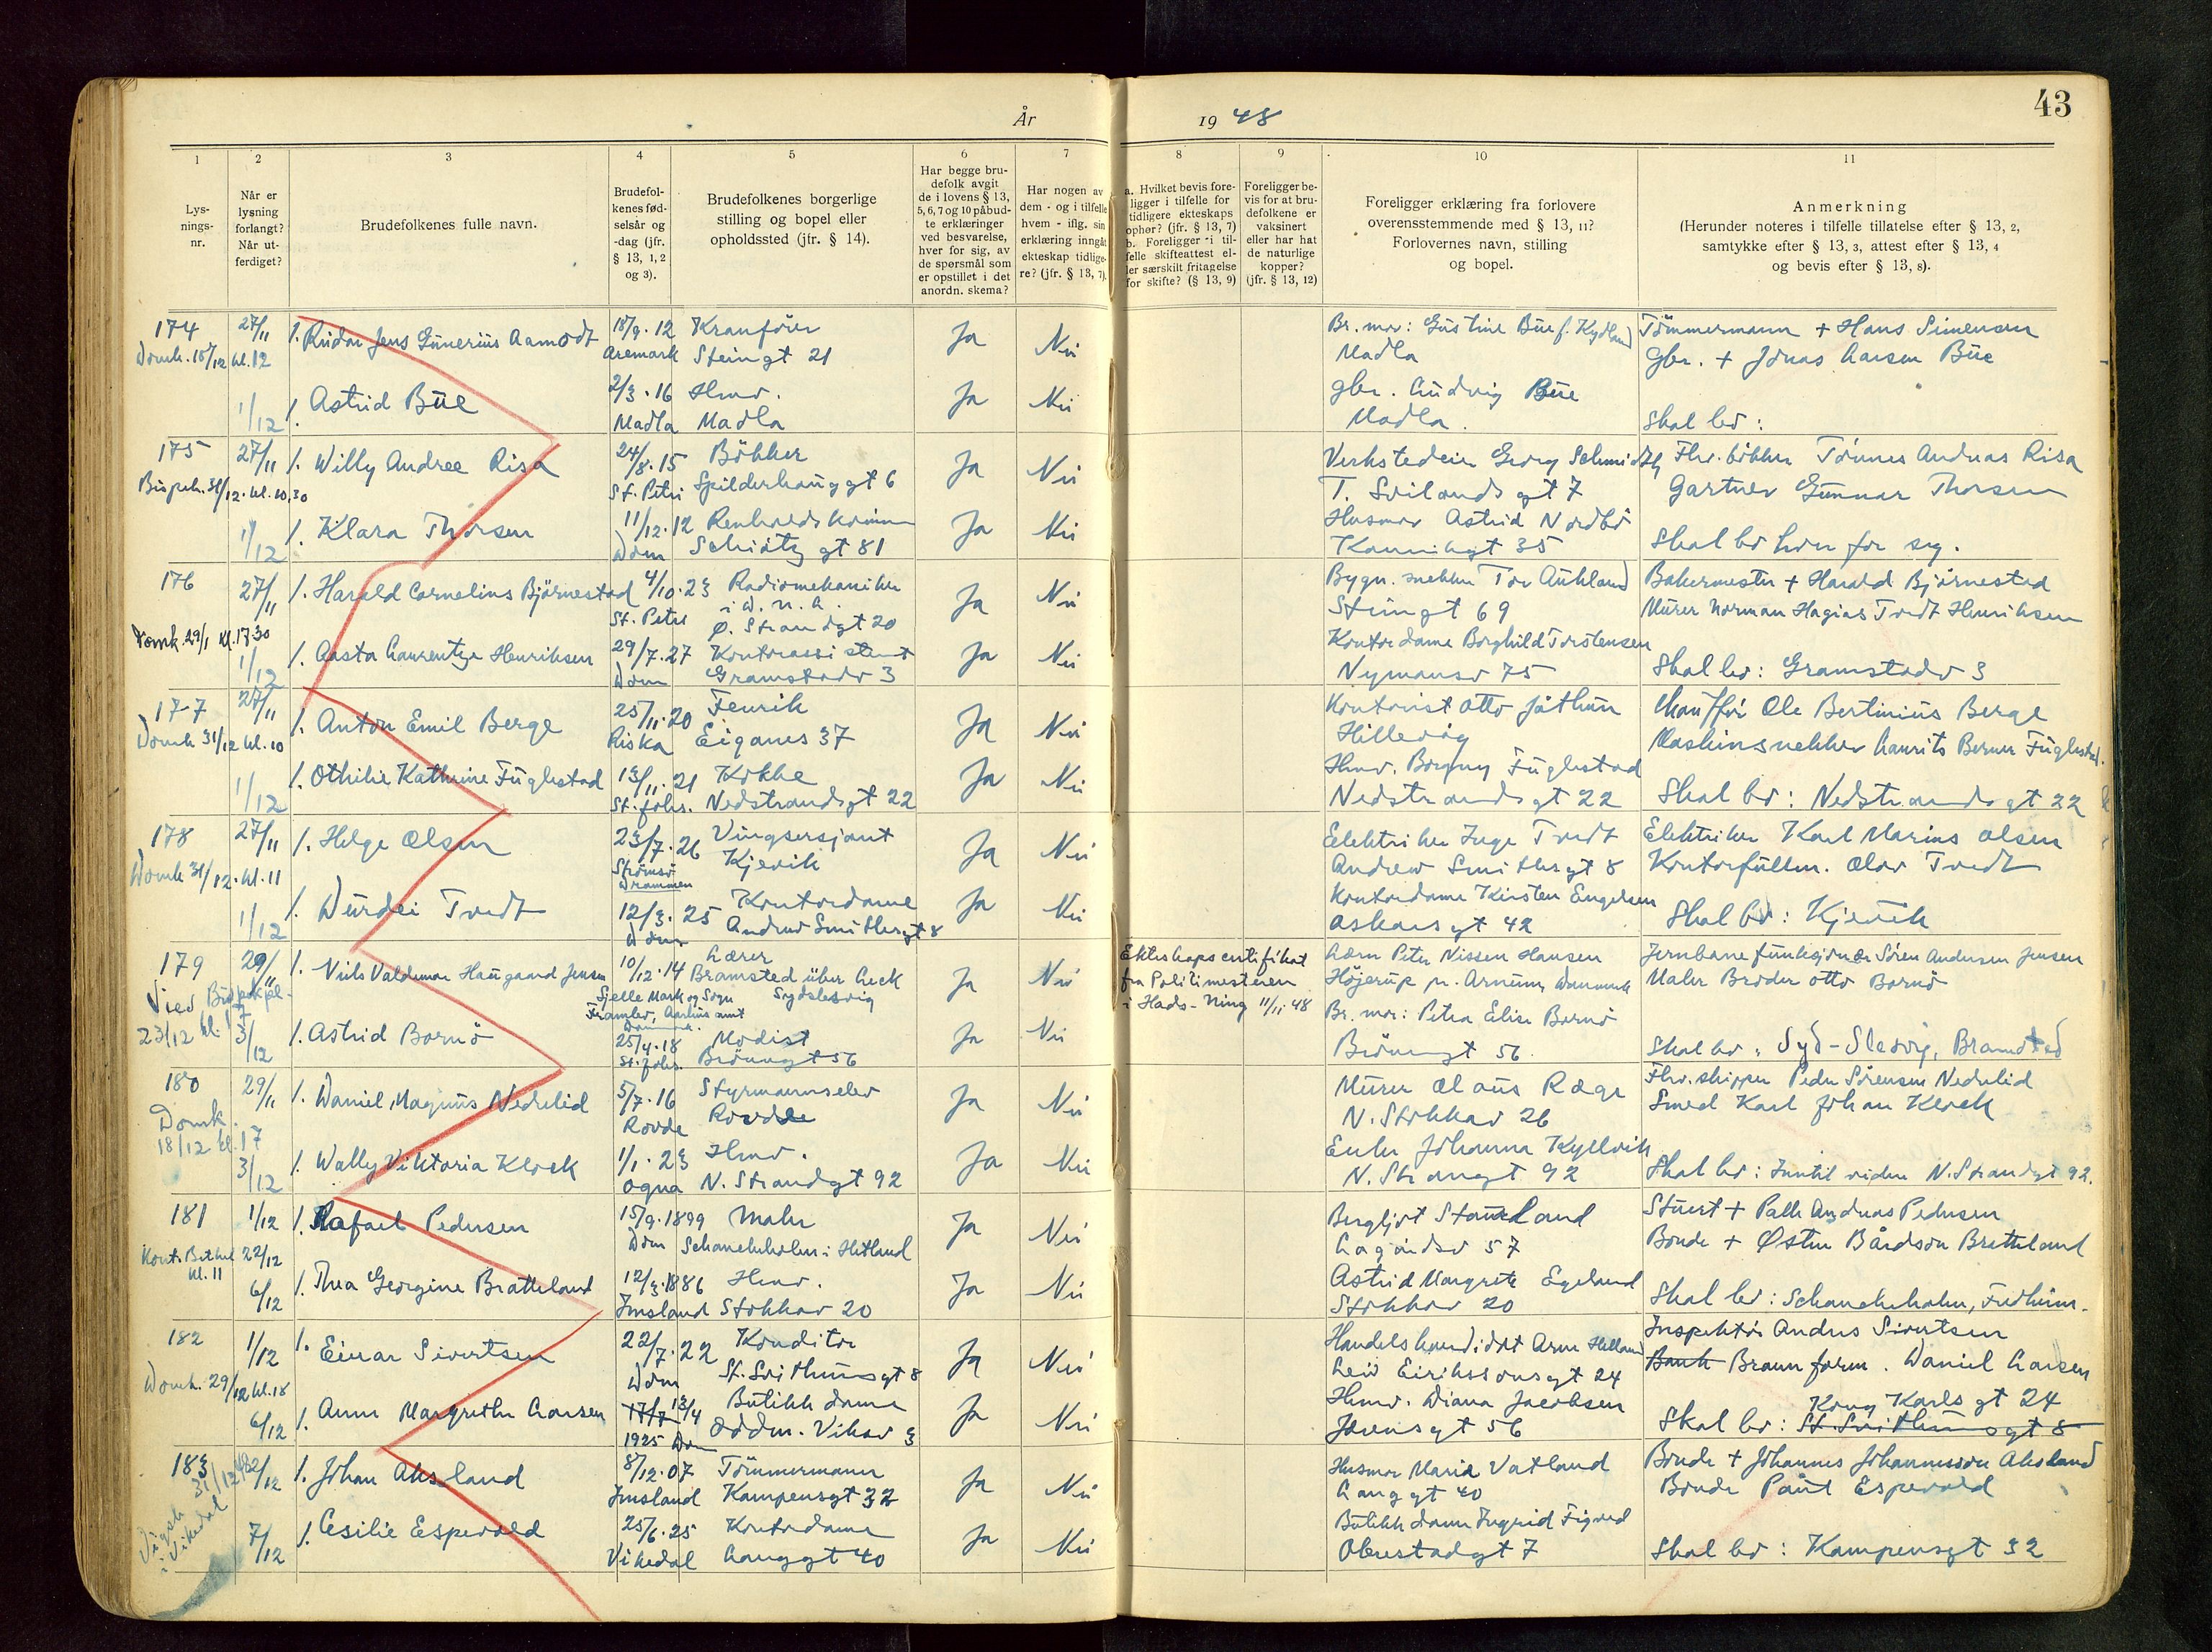 43
År 1948
1 2 3 4 5 6 7 8 9 10 11
Lys-
nings-
nr.
Når er
lysning
forlangt?
Når ut-
ferdiget?
Brudefolkenes fulle navn.
Brudefol-
kenes fød-
selsår og
-dag (jfr.
§ 13, 1, 2
og 3).
Brudefolkenes borgerlige
stilling og bopel eller
opholdssted (jfr. § 14).
Har begge bru-
defolk avgit
de i lovens § 13,
5, 6, 7 og 10 påbud-
te erklæringer
ved besvarelse,
hver for sig, av
de spørsmål som
er opstillet i det
anordn. skema?
Har nogen av
dem - og i tilfelle
hvem - iflg. sin
erklæring inngått
ekteskap tidlige-
re? (jfr. § 13, 7).
a. Hvilket bevis fore-
ligger i tilfelle for
tidligere ekteskaps
ophør? (jfr. § 13, 7)
b. Foreligger i til-
felle skifteattest el-
ler særskilt fritagelse
for skifte? (§ 13, 9)
Foreligger be-
vis for at bru-
defolkene er
vaksinert
eller har hat
de naturlige
kopper?
(jfr. § 13, 12)
Foreligger erklæring fra forlovere
overensstemmende med § 13, 11?
Forlovernes navn, stilling
og bopel.
Anmerkning
(Herunder noteres i tilfelle tillatelse efter § 13, 2,
samtykke efter § 13, 3, attest efter § 13, 4
og bevis efter § 13, 8).
174 27/11 1. Reidar Jens Gunerius Aamodt 18/9.12 Kranfører Ja Nei Br. mor: Gustine Bue f. Kydland Tömmermann + Hans Simensen
Domk. 18/12 kl. 12 Aremark Steingt 21 Madla Gbr. + Jonas Larsen Bue
1/12 1. Astrid Bue 2/3.16 Hmv. Ja Nei gbr. Ludvig Bue
Madla Madla Madla. Skal bo:
175 27/11 1. Willy Andree Risa 24/8.15 Bökker Ja Nei Verkstedeier Georg Schmidt Fhv. bökker Tönnes Andreas Risa
Bispek. 31/12. kl. 10.30 St. Petri Spilderhauggt 6 T. Svilandsgt 7 Gartner Gunnar Thorsen
1/12 1. Klara Thorsen 11/12.12 Renholdskvinne Ja Nei Husmor Astrid Nordbö
Dom Schiötz gt 81 Kannikgt 35 Skal bo hver for seg.
176 27/11 1. Harald Cornelius Björnestad 4/10.23 Radiomekaniker Ja Nei Bygn. snekker Tor Aukland Bakermester + Harald Björnestad
St. Petri i D.N.L. Steingt 69 Murer Norman Hagias Tvedt Henriksen
Ø. Strandgt 20
Domk 29/1 kl. 17.30 1/12 1. Aasta Laurentze Henriksen 29/7.27 Kontorassistent Ja Nei Kontordame Borghild Torstensen
Dom Gramstadv 3 Nymansv 75 Skal bo: Gramstadv 3
177 27/11 1. Anton Emil Berge 25/11.20 Fenrik Ja Nei Kontorist Otto Jåthun Chaufför Ole Bertinius Berge
Domk 31/12 kl. 10 Riska Eiganes 37 Hillevåg Maskinsnekker Laurits Berner Fuglestad.
1/12 1. Othilie Kathrine Fuglestad 13/11.21 Kokke Ja Nei Hmv. Borgny Fuglestad
St. Johs. Nedstrandsgt 22 Nedstrandsgt 22 Skal bo: Nedstrandsgt 22
178 27/11 1. Helge Olsen 23/7.26 Vingsersjant Ja Nei Elektriker Inge Tvedt Elektriker Karl Marius Olsen
Domk 31/12. kl. 11 Strömsö Kjevik Andrew Smithsgt 8 Kontorfullm. Olav Tvedt
Drammen
1/12 1. Durdei Tvedt 12/3.25 Kontordame Ja Nei Kontordame Kirsten Engelsen
Dom Andrew Smithsgt 8 Oskarsgt 42 Skal bo: Kjevik
179 29/11 1. Niels Valdemar Haugaard Jensen 10/12.14 Lærer Ja Nei Ekteskapscertifikat Lærer Peter Nissen Hansen Jernbanefunksjonær Sören Andersen Jensen
Bramsted über Leck fra Politimesteren Höjerup pr. Arnum, Danmark Maler Broder Otto Bornö
Sjelle Mark og Sogn Sydslesvig i Hads-Ning 11/11.48
Framlev, Aarhus amt
23/12 kl. 17 3/12 1. Astrid Bornö 25/4.18 Modist Ja Nei Br. mor: Petra Elise Bornö
St. Johs. Bröwngt 56 Bröwngt 56 Skal bo: Syd-Slesvig, Bramsted
180 29/11 1. Daniel Magnus Nedrelid 5/7.16 Styrmannselev Ja Nei Murer Olaus Ræge Fhv. skipper Peder Sörensen Nedrelid
Domk. Rovde Rovde N. Stokkav 26 Smed Karl Johan Klock
18/12 kl. 17 3/12 1. Wally Viktoria Klock 1/1.23 Hmv. Ja Nei Enke Johanna Kyllvik
Ogna N. Strandgt 92 N. Strandgt 92 Skal bo: Inntil videre N. Strandgt 92.
181 1/12 1. Rafael Pedersen 15/9.1899 Maler Ja Nei Bergljot Stauland Stuert + Palle Andreas Pedersen
Kont. Bethel 22/12 kl. 11 Dom Schanckeholen i Hetland Lagårdsv 57 Bonde + Østen Bårdson Bratteland
6/12 1. Thea Georgine Bratteland 12/3.1886 Hmv. Ja Nei Astrid Margrete Egeland
Imsland Stokkav 20 Stokkav 20 Skal bo: Schanckeholen, Fredheim.
182 1/12 1. Einar Sivertsen 22/7.22 Konditor Ja Nei Handelskandidat Arne Helland Inspektör Anders Sivertsen
Domk. 29/12 kl. 18 Dom St. Svithunsgt 8 Leiv Eirikssonsgt 24 Bank Brannform. Daniel Larsen
6/12 1. Anne Margrethe Larsen 17/7 13/4 Butikkdame Ja Nei Hmv. Diana Jacobsen Kong Karls gt 24
1925 Dom Oddm. Vikav 3 Jörensgt 56 Skal bo: St. Svithunsgt 8
183 2/12 1. Johan Aksland 8/12.07 Tömmermann Ja Nei Husmor Maria Vatland Bonde + Johannes Johannesson Aksland
31/12 Imsland Kampensgt 32 Langgt 40 Bonde Paul Espevold
i Vikedal 7/12 1. Cesilie Espevold 25/6.25 Kontordame Ja Nei Butikkdame Ingrid Figved
Vikedal Langgt 40 Obrestadgt 7 Skal bo: Kampensgt 32